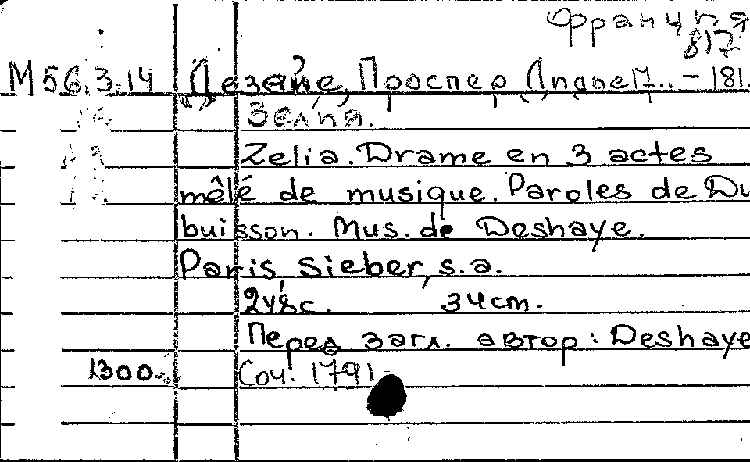 Франция
817
М 56.3.14 Дезэйе, Проспер Дидье М.. – 181
Зелия.
Zelia. Drame en 3 actes
mêlé de musique. Paroles de Du
buisson. Mus. de Deshaye.
Paris, Sieber, s.a.
34cm.
Перед загл. автор: Deshaye
1300 Соч. 1791